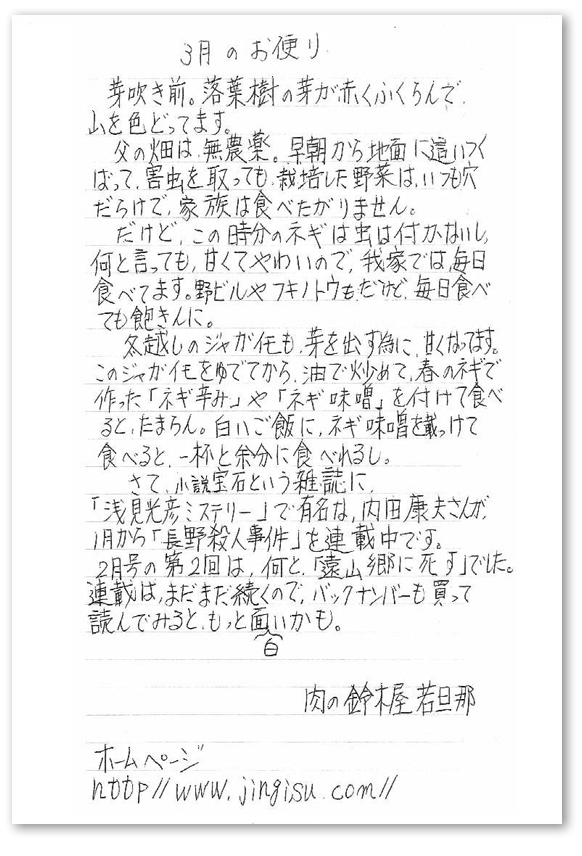 3月のお便り
芽吹き前。落葉樹の芽が赤くふくらんで、
山を色どってます。
父の畑は、無農薬。早朝から地面に這いつく
ばって、害虫を取っても、栽培した野菜は、いつも穴
だらけで、家族は食べたがりません。
だけど、この時分のネギは虫は付かないし、
何と言っても、甘くてやわいので、我家では、毎日
食べてます。野ビルやフキノトウも、だけど、毎日食べ
ても飽きんに。
冬越しのジャガイモも、芽を出す為に、甘くなってます。
このジャガイモをゆでてから、油で炒めて、春のネギで
作った「ネギ辛み」や「ネギ味噌」を付けて食べ
ると、たまらん。白いご飯に、ネギ味噌を載っけて
食べると、一杯と余分に食べれるし。
さて、小説宝石という雑誌に、
「浅見光彦ミステリー」で有名な、内田康夫さんが、
1月から「長野殺人事件」を連載中です。
2月号の第2回は、何と、「遠山郷に死す」でした。
連載は、まだまだ続くので、バックナンバーも買って
読んでみると、もっと面いかも。
白
肉の鈴木屋 若旦那
ホームページ
http//www.jingisu.com//